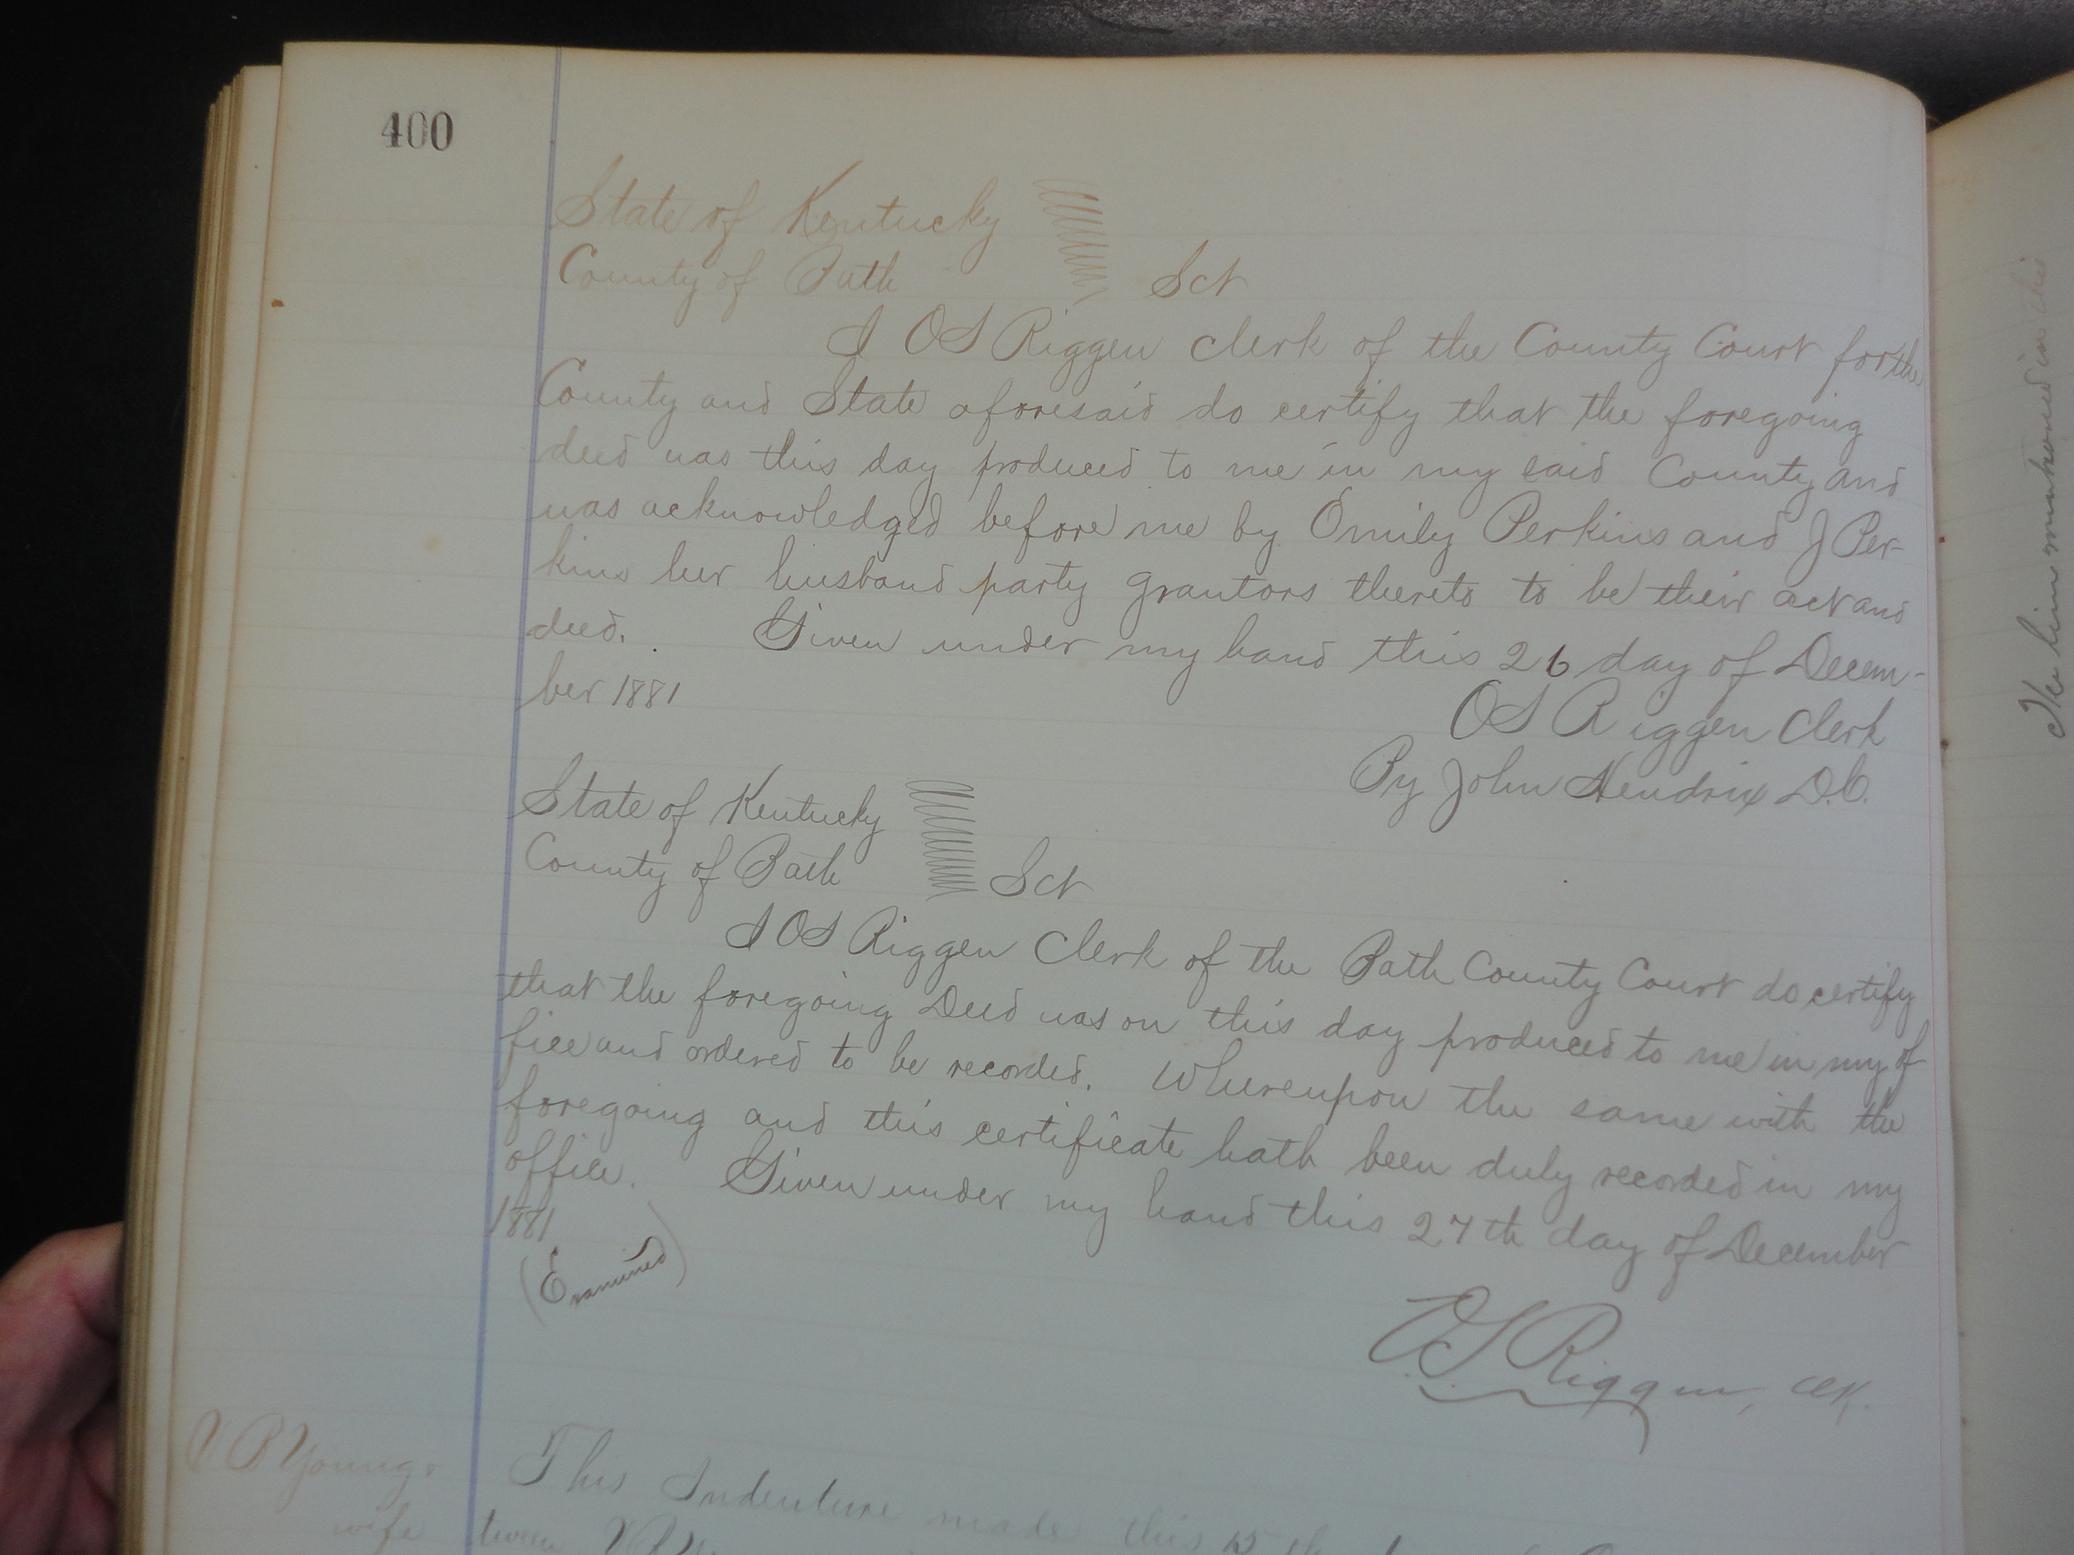 400
State of Kentucky
County of Bath Sct
I OS Riggen Clerk of the County Court for the
County and State aforesaid do certify that the foregoing
deed was this day produced to me in my said County and
was acknowledged before me by Emily Perkins and J Per-
kins her husband party grantors thereto to be their act and
deed. Given under my hand this 26 day of Decem-
ber 1881
OS Riggen Clerk
By John Hendrix D.C.
State of Kentucky
County of Bath Sct
I OS Riggen Clerk of the Bath County Court do certify
that the foregoing Deed was on this day produced to me in my of
fice and ordered to be recorded. Whereupon the same with the
foregoing and this certificate hath been duly recorded in my
office. Given under my hand this 27th day of December
1881
(Examined)
OS Riggen, clk.
Young
wife
This Indenture made this 15th
tween